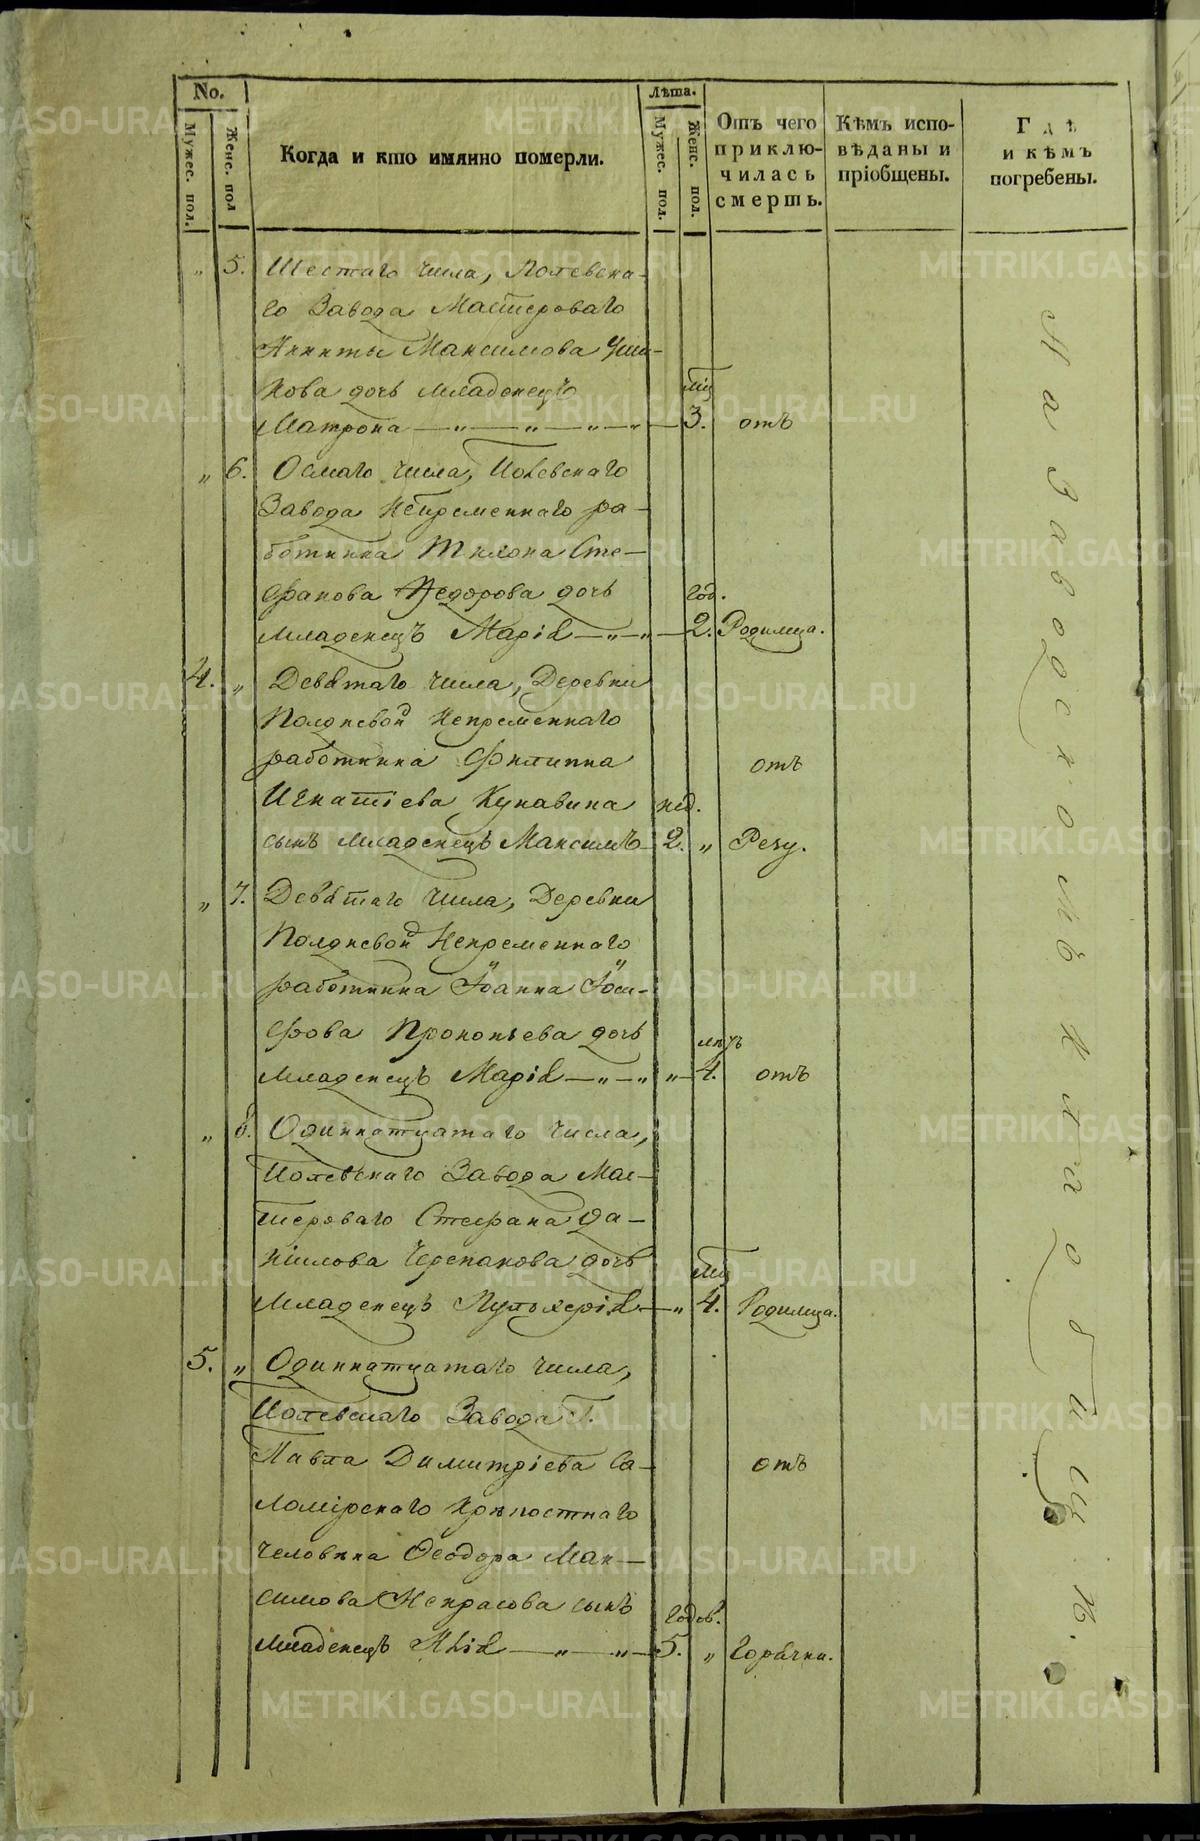 No.
Мужес. пол.
Женс. пол
Когда и кто имянно померли.
Лѣта.
Мужес. пол.
Женс. пол.
Отъ чего приклю-
чилась
смерть.
Кѣмъ испо-
вѣданы и
пріобщены.
Гдѣ
и кѣмъ
погребены.
" 5. Шестаго числа, Полевска-
го Завода Мастероваго
Никиты Максимова Уша-
кова дочь младенецъ мц̃
Матрона — " — " — " — " — 3. отъ
" 6. Осмаго числа, Полевскаго
Завода Непременнаго ра-
ботника Филона Сте-
фанова Федорова дочь год.
младенецъ Марія — " — " — 2. Родимца.
4. " Девятаго числа, Деревни
Полдневой Непременнаго
работника Филиппа отъ
Игнатіева Кунавина нед.
сынъ младенецъ Максимъ 2. " Резу.
" 7. Девятаго числа, Деревни
Полдневой Непременнаго
работника Іоанна Іоси-
фова Прокопьева дочь лѣтъ
младенецъ Марія — " — " " — 4. отъ
" 8. Одиннатцатаго числа,
Полевскаго Завода Мас-
тероваго Стефана Да-
ніилова Черепанова дочь мц̃
младенецъ Пульхерія — " 4. Родимца.
5. " Одиннатцатаго числа,
Полевскаго Завода Г.
Павла Димитріева Са- отъ
ломірскаго Крѣпостнаго
человѣка Ѳеодора Мак-
симова Некрасова сынъ годов.
младенецъ Илія — " — " — 5. " Горячки.
На Заводскомъ Кладбищѣ.
METRIKI.GASO-URAL.RU